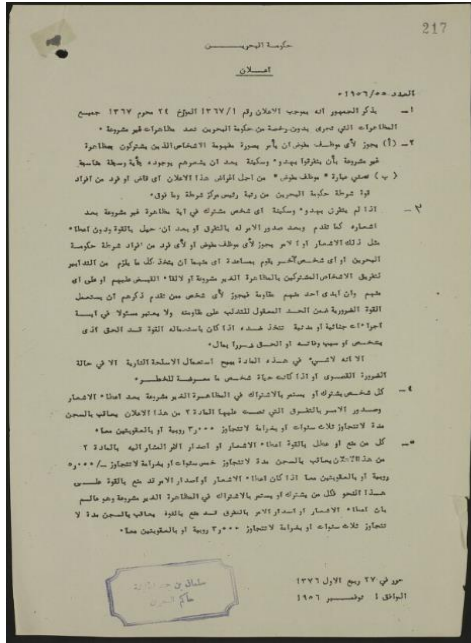 217
حكومة البحريـــــــن
اعـــلان
العدد ١٩٥٦/٥٥
١ــ يذكر الجمهور انه بموجب الاعلان رقم ١٣٦٧/١ المؤرخ ٢٤ محرم ١٣٦٧ جميع
المظاهرات التي تجرى بدون رخصة من حكومة البحرين تعد مظاهرات غير مشروعة ٠
٢ــ (أ) يجوز لأى موظف مفوض ان يأمر بصورة مفهومة الاشخاص الذين يشتركون بمظاهرة
غير مشروعة بأن يتفرقوا بهدوء وسكينة بعد ان يشعرهم بوجوده بأية وسيلة مناسبة
(ب) تعني عبارة " موظف مفوض " من اجل اغراض هذا الاعلان أى قاض او فرد من افراد
قوة شرطة حكومة البحرين من رتبة رئيس مركز شرطة وما فوق ٠
٣ــ اذا لم يتفرق بهدوء وسكينة أى شخص مشترك في اية مظاهرة غير مشروعة بعد
اشعاره كما تقدم وبعد صدور الامر له بالتفرق او بعد ان حيل بالقوة دون اعطاء
مثل ذلك الاشعار او الامر يجوز لأى موظف مفوض او لأى فرد من افراد شرطة حكومة
البحرين او أى شخص آخر يقوم بمساعدة أى منهما ان يتخذ كل ما يلزم من التدابير
لتفريق الاشخاص المشتركين بالمظاهرة الغير مشروعة او لالقاء القبض عليهم او على أى
منهم وان أبدى احد منهم مقاومة فيجوز لأى شخص ممن تقدم ذكرهم ان يستعمل
القوة الضرورية ضمن الحد المعقول للتغلب على مقاومته ولا يعتبر مسئولا في اية
اجراءات جنائية او مدنية تتخذ ضده اذا كان باستعماله القوة قد الحق اذى
بشخص او سبب وفاته او الحق ضررا بمال ٠
الا انه لاشيء في هذه المادة يبيح استعمال الاسلحة النارية الا في حالة
الضرورة القصوى او اذا كانت حياة شخص ما معرضة للخطر ٠
٤ــ كل شخص يشترك او يستمر بالاشتراك في المظاهرة الغير مشروعة بعد اعطاء الاشعار
وصدور الامر بالتفرق التي نصت عليها المادة ٢ من هذا الاعلان يعاقب بالسجن
مدة لاتتجاوز ثلاث سنوات او بغرامة لاتتجاوز ٣٫٠٠٠ روبية او بالعقوبتين معا ٠
٥ــ كل من منع او عطل بالقوة اعطاء الاشعار او اصدار الامر المشار اليه بالمادة ٢
من يعاقب بالسجن مدة لاتتجاوز خمس سنوات او بغرامة لاتتجاوز ٥٫٠٠٠/ــ
روبية او بالعقوبتين معا اذا كان اعطاء الاشعار او اصدار الامر قد منع بالقوة على
هذا النحو فكل من يشترك او يستمر بالاشتراك في المظاهرة الغير مشروعة وهو عالم
بان اعطاء الاشعار او اصدار الامر بالتفرق قد منع بالقوة يعاقب بالسجن مدة لا
تتجاوز ثلاث سنوات او بغرامة لاتتجاوز ٣٫٠٠٠ روبية او بالعقوبتين معا ٠
حرر في ٢٧ ربيع الاول ١٣٧٦
الموافق ١ نوفمبر ١٩٥٦
سلمان بن
حاكم البحرين